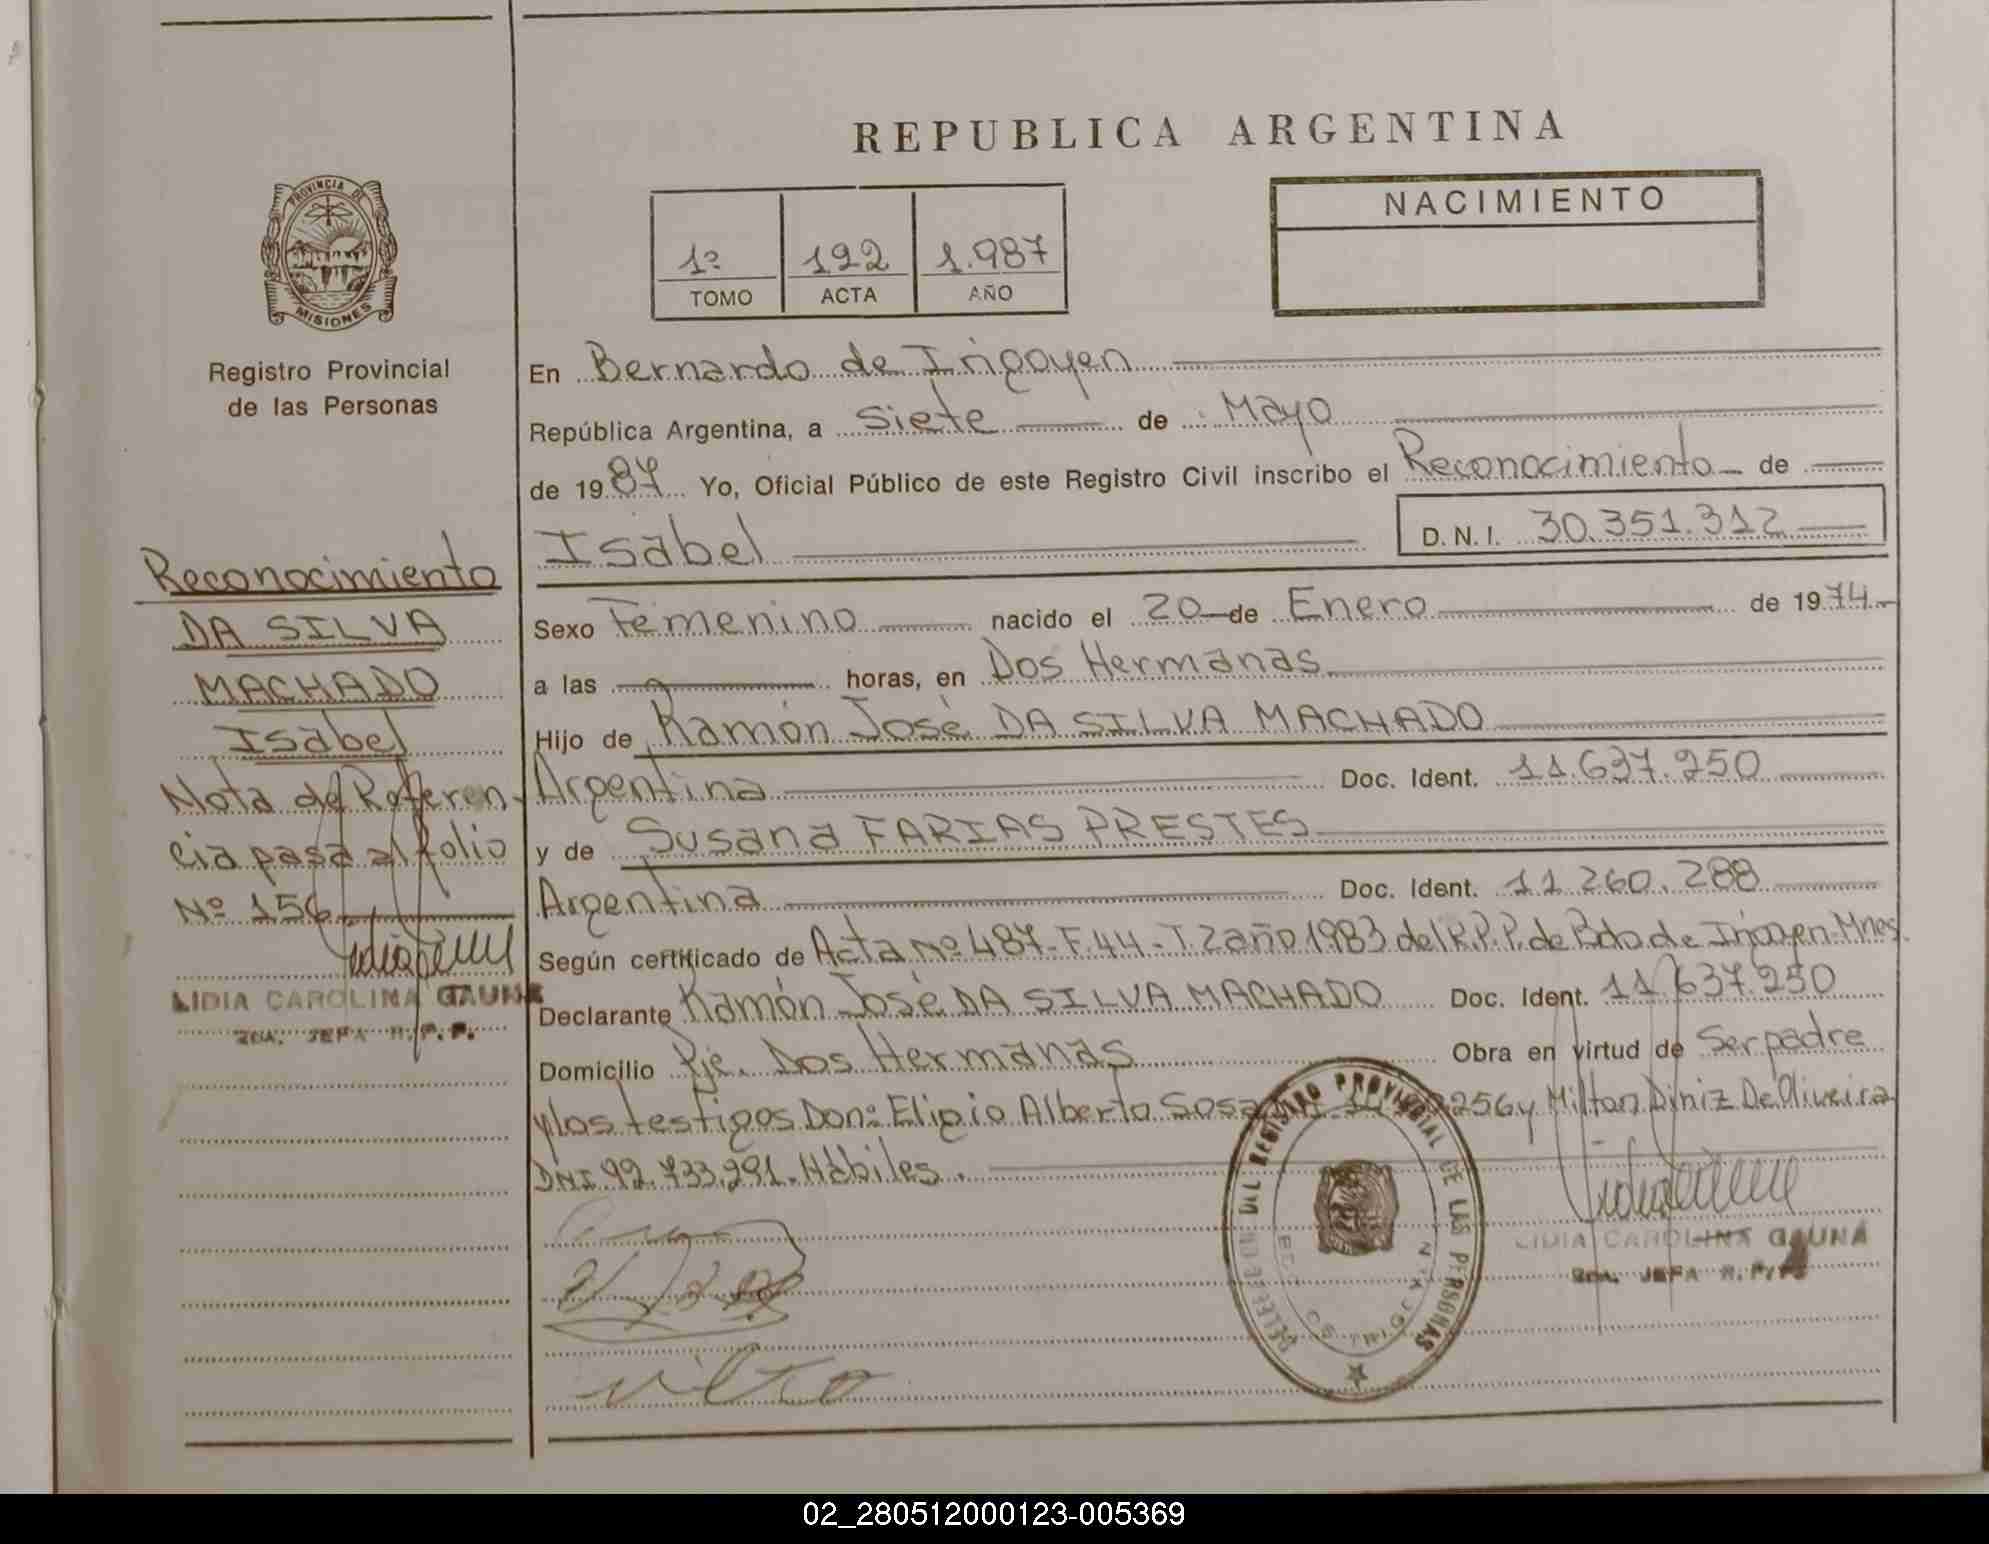 REPUBLICA ARGENTINA
PROVINCIA DE MISIONES
Registro Provincial
de las Personas
1º 192 1.987
TOMO ACTA AÑO
NACIMIENTO
En Bernardo de Irigoyen
República Argentina, a siete de Mayo
de 1987 Yo, Oficial Público de este Registro Civil inscribo el Reconocimiento de
Isabel D.N.I. 30.351.312
Sexo Femenino nacido el 20 de Enero de 1974
a las horas, en Dos Hermanas
Hijo de Ramón José DA SILVA MACHADO
Argentina Doc. Ident. 11.637.250
y de Susana FARIAS PRESTES
Argentina Doc. Ident. 11.260.288
Según certificado de Acta Nº 487-F.44-T.2 año 1983 del R.P.P. de Bdo. de Irigoyen-Mnes.
Declarante Ramón José DA SILVA MACHADO Doc. Ident. 11.637.250
Domicilio Pje. Dos Hermanas Obra en virtud de Ser padre
y los testigos Don: Eligio Alberto Sosa 256 y Milton Diniz De Oliveira
DNI 92.733.291. Hábiles.
LIDIA CAROLINA GAUNA
2DA. JEFA R.P.P.
DEL REGISTRO PROVINCIAL DE LAS PERSONAS
Reconocimiento
DA SILVA
MACHADO
Isabel
Nota de Referen-
cia pasa al folio
Nº 156
LIDIA CAROLINA GAUNA
2DA. JEFA R.P.P.
02_280512000123-005369